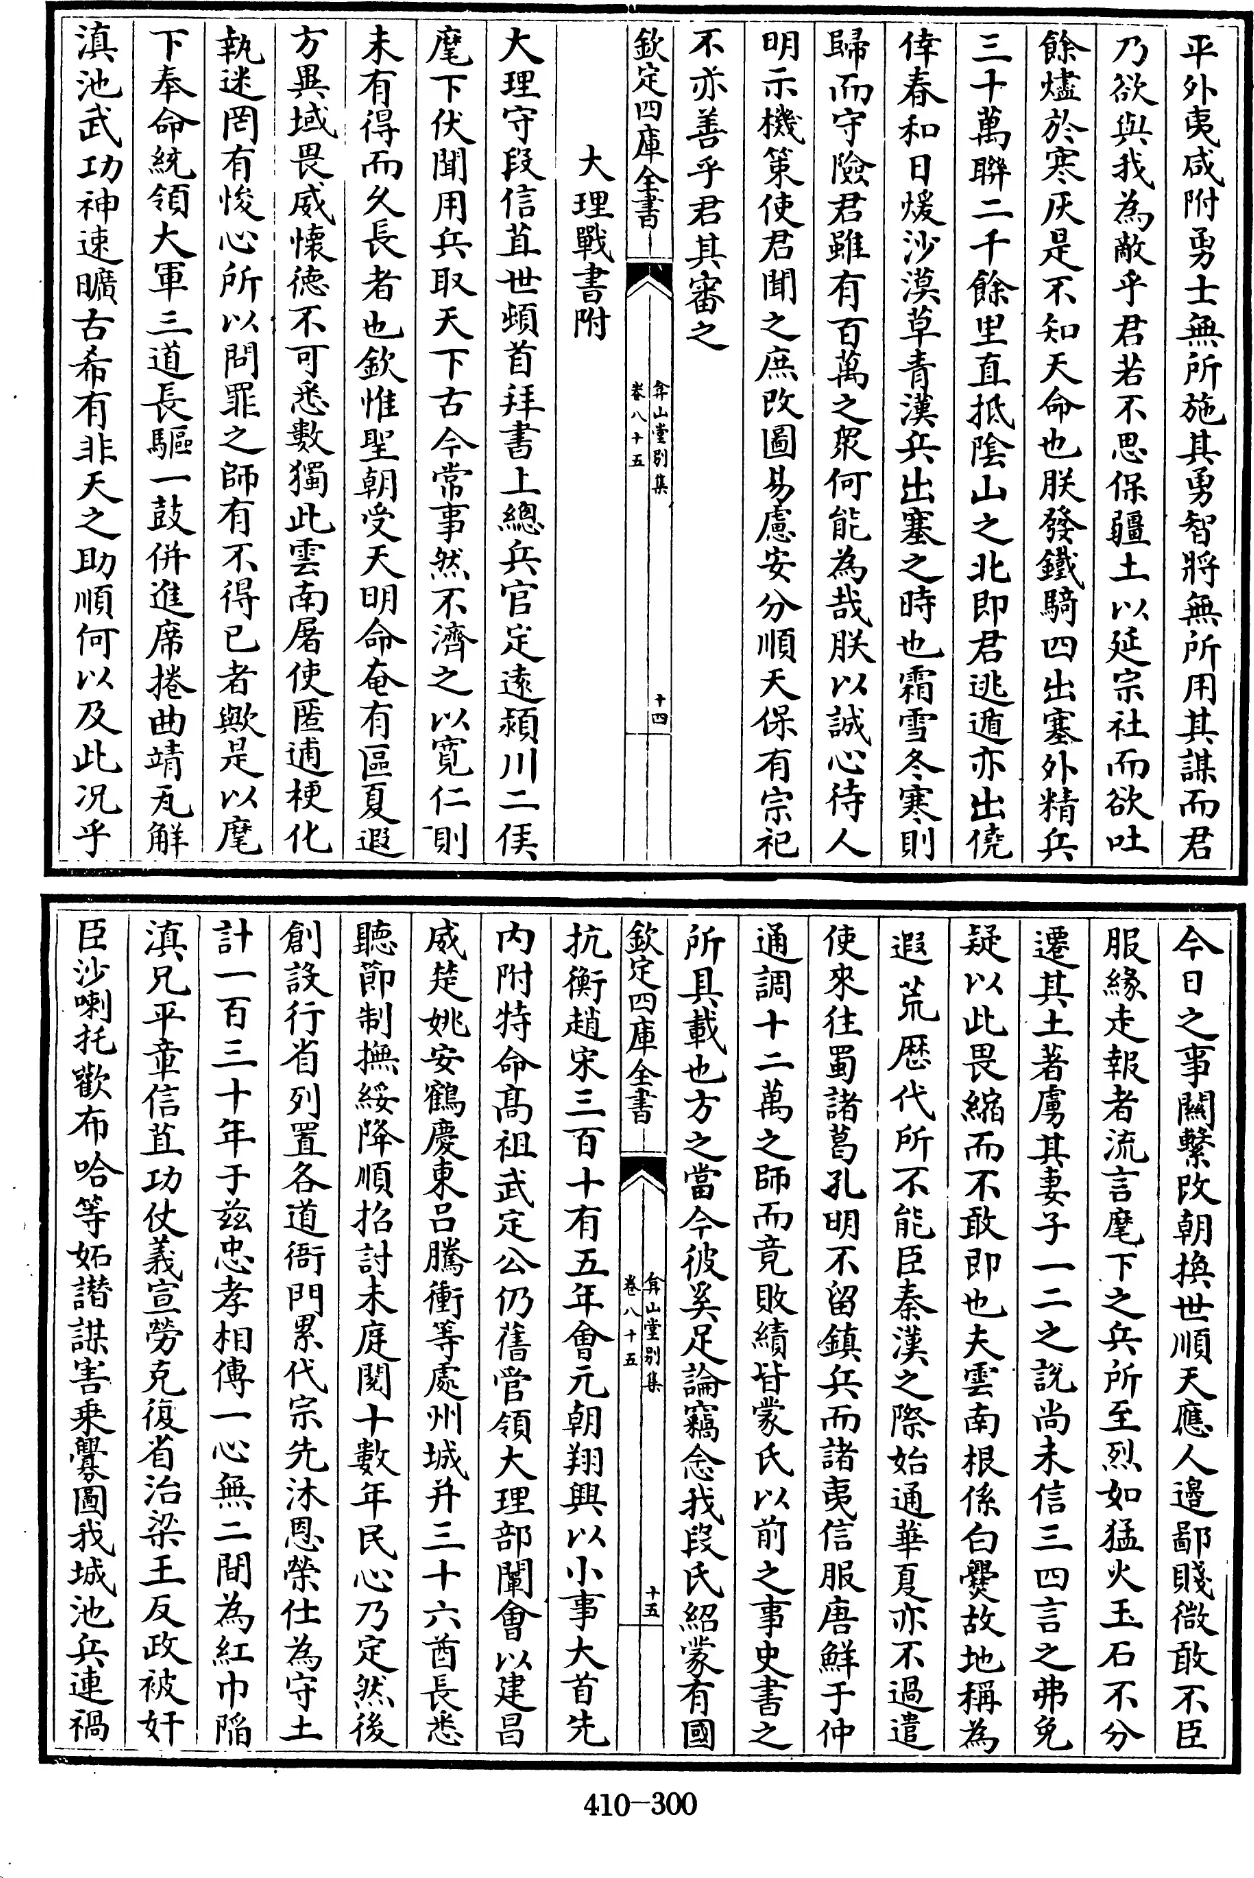 平外夷咸附勇士無所施其勇智將無所用其謀而君
乃欲與我為敵乎君若不思保疆土以延宗社而欲吐
餘燼於寒灰是不知天命也朕發鐵騎四出塞外精兵
三十萬聯二千餘里直抵陰山之北即君逃遁亦出僥
倖春和日煖沙漠草青漢兵出塞之時也霜雪冬寒則
歸而守險君雖有百萬之衆何能為哉朕以誠心待人
明示機策使君聞之庶改圖易慮安分順天保有宗祀
不亦善乎君其審之
欽定四庫全書
弇山堂别集
卷八十五
十四
大理戰書附
大理守段信苴世頓首拜書上總兵官定遠潁川二侯
麾下伏聞用兵取天下古今常事然不濟之以寛仁則
未有得而久長者也欽惟聖朝受天明命奄有區夏遐
方異域畏威懷德不可悉數獨此雲南屠使匿逋梗化
執迷罔有悛心所以問罪之師有不得已者歟是以麾
下奉命統領大軍三道長驅一鼓併進席捲曲靖瓦解
滇池武功神速曠古希有非天之助順何以及此况乎
今日之事關繫改朝換世順天應人邊鄙賤微敢不臣
服緣走報者流言麾下之兵所至烈如猛火玉石不分
遷其土著虜其妻子一二之説尚未信三四言之弗免
疑以此畏縮而不敢即也夫雲南根係白爨故地稱為
遐荒歴代所不能臣秦漢之際始通華夏亦不過遣
使來往蜀諸葛孔明不留鎮兵而諸夷信服唐鮮于仲
通調十二萬之師而竟敗績皆蒙氏以前之事史書之
所具載也方之當今彼奚足論竊念我段氏紹蒙有國
欽定四庫全書
弇山堂别集
卷八十五
十五
抗衡趙宋三百十有五年會元朝翔興以小事大首先
内附特命高祖武定公仍舊管領大理部闡會以建昌
威楚姚安鶴慶東吕騰衝等處州城并三十六酋長悉
聽節制撫綏降順招討未庭閱十數年民心乃定然後
創設行省列置各道衙門累代宗先沐恩榮仕為守土
計一百三十年于兹忠孝相傳一心無二間為紅巾陷
滇兄平章信苴功仗義宣勞克復省治梁王反政被奸
臣沙喇托歡布哈等妬譖謀害乘釁圖我城池兵連禍
410-300